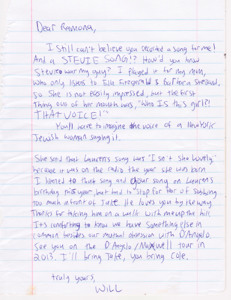 Dear Ramona,
I still can't believe you wrote a song for me!
And a STEVIE SONG!? How'd you know
Stevie was my guy? I played it for my mom,
who only likes to Ella Fitzgerald & Barbra Streisand,
so she is not easily impressed, but the first
thing out of her mouth was, "Who IS this girl?!
THAT VOICE!"
You'll have to imagine the voice of a
Jewish woman saying it.
She said that Lauren's song was "Isn't She Lovely"
because it was on the radio the year she was born
I listened to that song and your song on Lauren's
birthday this year, but had to stop for fear of sobbing
too much in front of Jake. He loves you by the way.
Thanks for taking him on a walk with me up the hill.
It's comforting to know we have something else in
common besides our mutual obsession with D'Angelo.
See you on the D'Angelo/Maxwell tour in
2013. I'll bring Jake, you bring Cole.
truly yours,
WILL